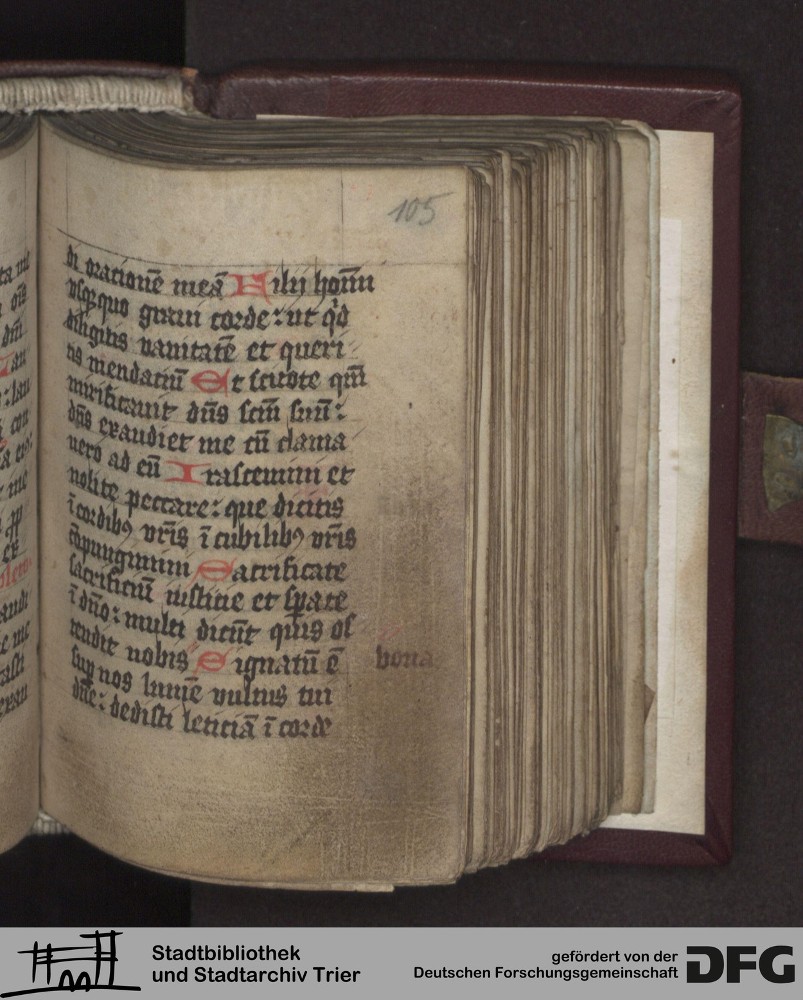 105
di oracionē meā Filij hoīm
vsq̄quo graui corde : ut qͥd
diligitis vanitatē et queri
tis mendaciū Et scitote qm̄
mirificauit dn̄s scm̄ suū :
dn̄s exaudiet me cū clama
uero ad eū Irascemini et
nolite peccare : que dicitis
ī cordibꝰ vr̄is ī cubilibꝰ vr̄is
cōpungimini Sacrificate
sacrificiū iusticie et sp̄ate
ī dn̄o : multi dicūt quis os
tendit nobis Signatū ē bona
sup̄ nos lumē vultus tui
dn̄e : dedisti leticiā ī corde
Stadtbibliothek
und Stadtarchiv Trier
gefördert von der
Deutschen Forschungsgemeinschaft
DFG